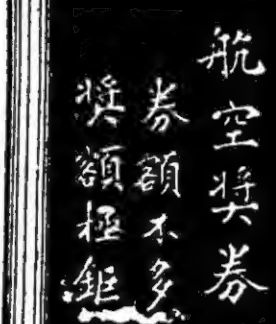 航空奬券
券額不多
奬額極鉅